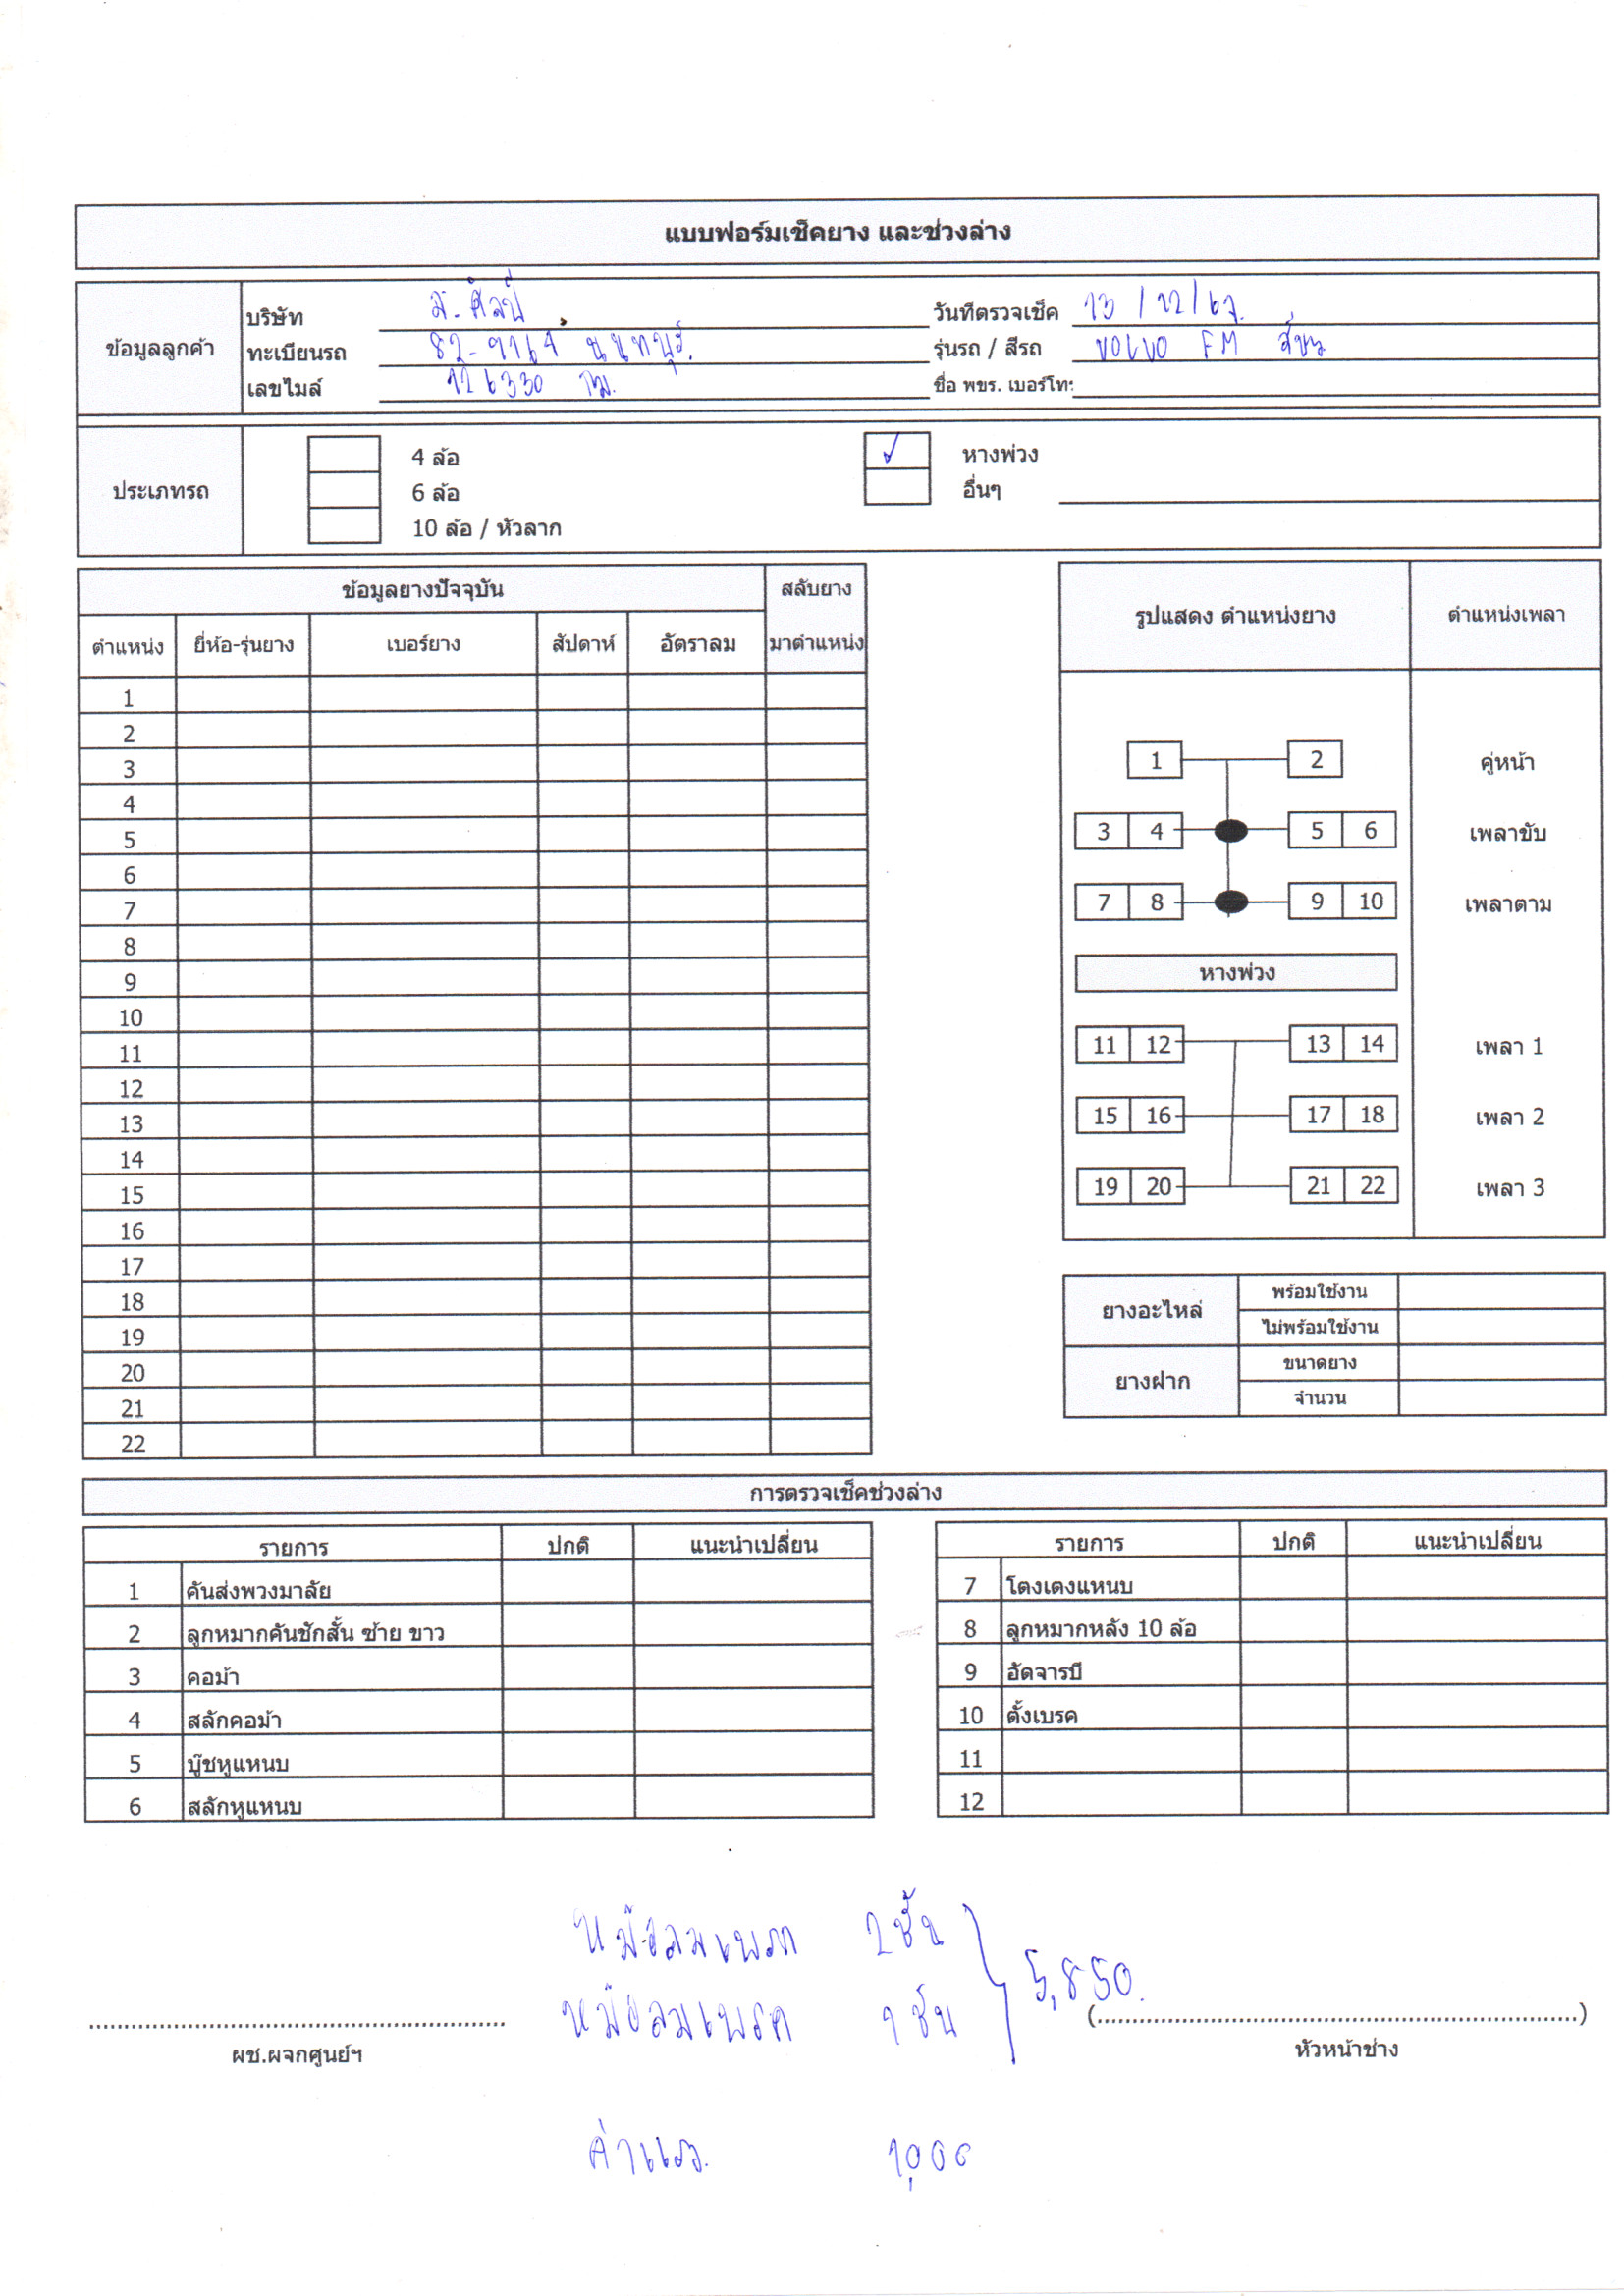 แบบฟอร์มเช็คยาง และช่วงล่าง
ข้อมูลลูกค้า
บริษัท ส.ศิลป์ วันที่ตรวจเช็ค 13/12/67
ทะเบียนรถ นนทบุรี รุ่นรถ / สีรถ VOLVO FM
เลขไมล์ 126330 กม. ชื่อ พขร. เบอร์โทร
ประเภทรถ
4 ล้อ หางพ่วง
6 ล้อ อื่นๆ
10 ล้อ / หัวลาก
ข้อมูลยางปัจจุบัน สลับยาง
ตำแหน่ง ยี่ห้อ-รุ่นยาง เบอร์ยาง สัปดาห์ อัตราลม มาตำแหน่ง
1
2
3
4
5
6
7
8
9
10
11
12
13
14
15
16
17
18
19
20
21
22
รูปแสดง ตำแหน่งยาง ตำแหน่งเพลา
1 2 คู่หน้า
3 4 5 6 เพลาขับ
7 8 9 10 เพลาตาม
หางพ่วง
11 12 13 14 เพลา 1
15 16 17 18 เพลา 2
19 20 21 22 เพลา 3
ยางอะไหล่ พร้อมใช้งาน
ไม่พร้อมใช้งาน
ยางฝาก ขนาดยาง
จำนวน
การตรวจเช็คช่วงล่าง
รายการ ปกติ แนะนำเปลี่ยน
1 คันส่งพวงมาลัย
2 ลูกหมากคันชักสั้น ซ้าย ขาว
3 คอม้า
4 สลักคอม้า
5 บู๊ชหูแหนบ
6 สลักหูแหนบ
รายการ ปกติ แนะนำเปลี่ยน
7 โตงเตงแหนบ
8 ลูกหมากหลัง 10 ล้อ
9 อัดจารบี
10 ตั้งเบรค
11
12
หม้อลมเบรค 2 ชั้น
5,850.
หม้อลมเบรค 1 ชั้น
ผช.ผจกศูนย์ฯ
(....................)
หัวหน้าช่าง
ค่าแรง 1,000